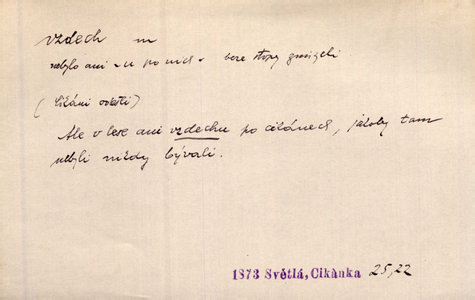 vzdech m
nebylo ani -u po nich - beze stopy zmizeli
(Cikáni odešli)
Ale v lese ani vzdechu po cikánech, jakoby tam
nebyli nikdy bývali.
1873 Světlá, Cikánka 25,22